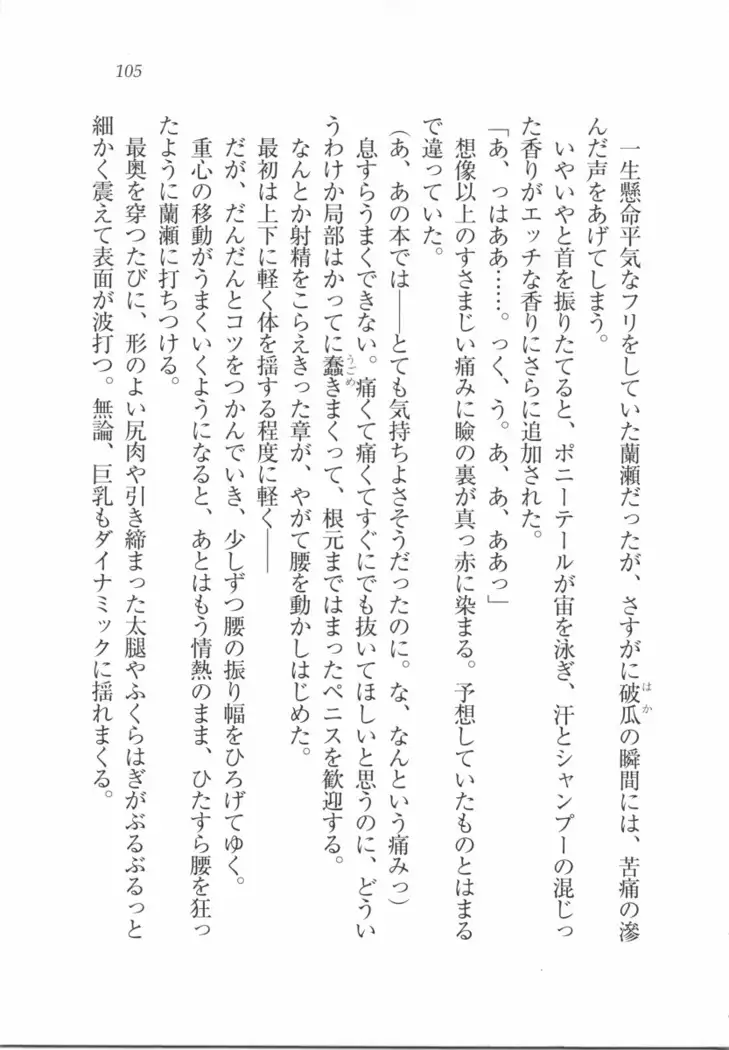 105
一生懸命平気なフリをしていた蘭瀬だったが、さすがに破瓜の瞬間には、苦痛の滲
んだ声をあげてしまう。
いやいやと首を振りたてると、ポニーテールが宙を泳ぎ、汗とシャンプーの混じっ
た香りがエッチな香りにさらに追加された。
「あ、っはああ……。っく、う。あ、あ、ああっ」
想像以上のすさまじい痛みに瞼の裏が真っ赤に染まる。予想していたものとはまる
で違っていた。
(あ、あの本では――とても気持ちよさそうだったのに。な、なんという痛みっ)
息すらうまくできない。痛くて痛くてすぐにでも抜いてほしいと思うのに、どうい
うわけか局部はかってに蠢きまくって、根元まではまったペニスを歓迎する。
なんとか射精をこらえきった章が、やがて腰を動かしはじめた。
最初は上下に軽く体を揺する程度に軽く――
だが、だんだんとコツをつかんでいき、少しずつ腰の振り幅をひろげてゆく。
重心の移動がうまくいくようになると、あとはもう情熱のまま、ひたすら腰を狂っ
たように蘭瀬に打ちつける。
最奥を穿つたびに、形のよい尻肉や引き締まった太腿やふくらはぎがぶるぶるっと
細かく震えて表面が波打つ。無論、巨乳もダイナミックに揺れまくる。